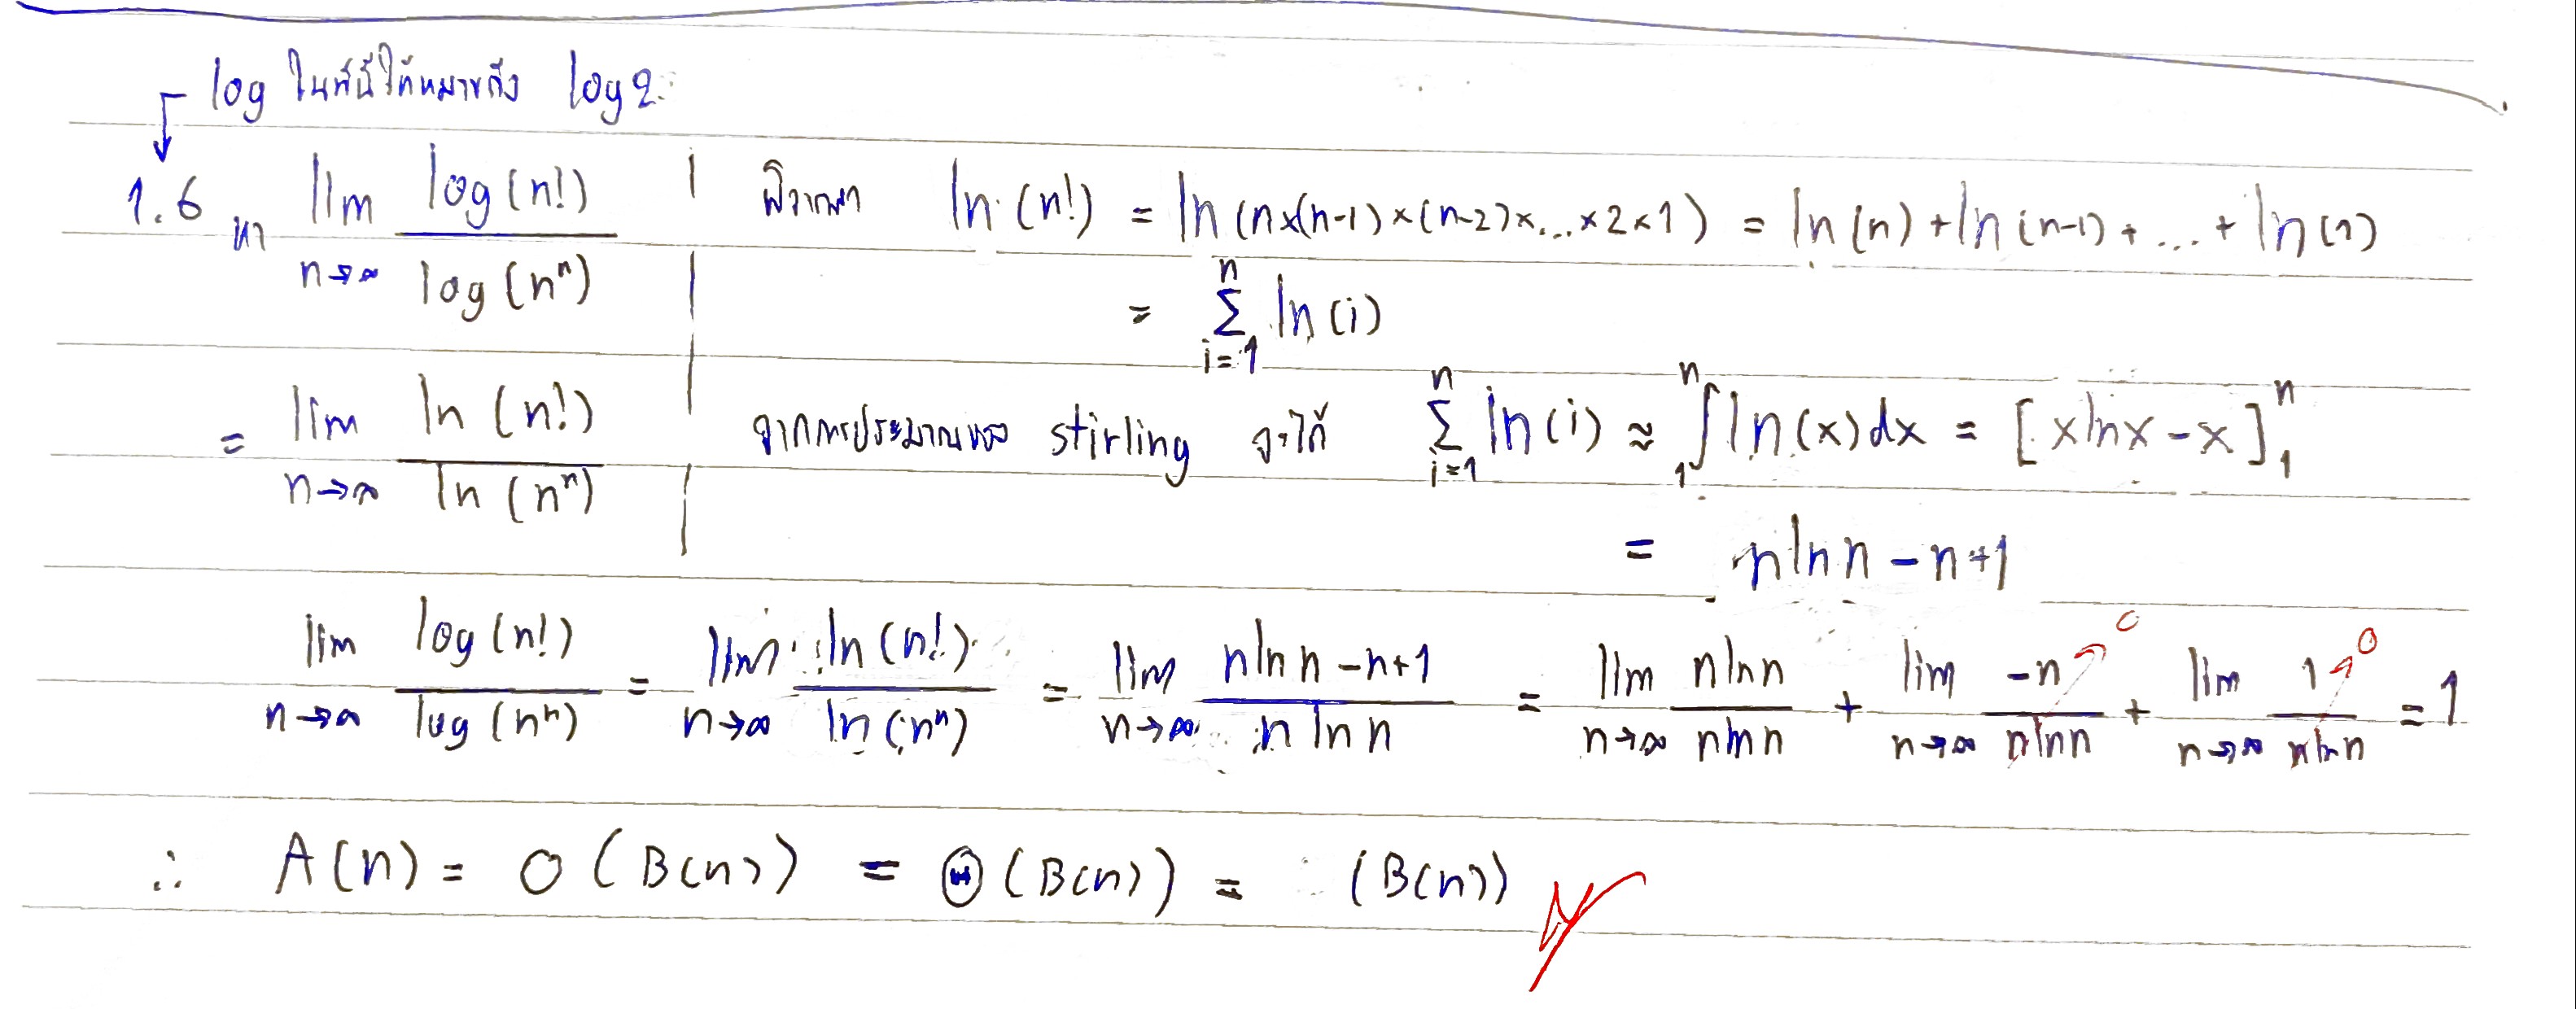 log ในที่นี้ให้หมายถึง log 2
1.6 หา lim n→∞ log(n!) / log(nⁿ) | พิจารณา ln(n!) = ln(n×(n-1)×(n-2)×...×2×1) = ln(n) + ln(n-1) + ... + ln(1)
= Σ i=1 n ln(i)
= lim n→∞ ln(n!) / ln(nⁿ) | จากการประมาณของ stirling จะได้ Σ i=1 n ln(i) ≈ 1∫n ln(x)dx = [xlnx - x]₁ⁿ
= nlnn - n+1
lim n→∞ log(n!) / log(nⁿ) = lim n→∞ ln(n!) / ln(nⁿ) = lim n→∞ nlnn - n+1 / nlnn = lim n→∞ nlnn / nlnn + lim n→∞ -n / nlnn 0 + lim n→∞ 1 / nlnn 0 = 1
∴ A(n) = O(B(n)) = Θ(B(n)) = (B(n))